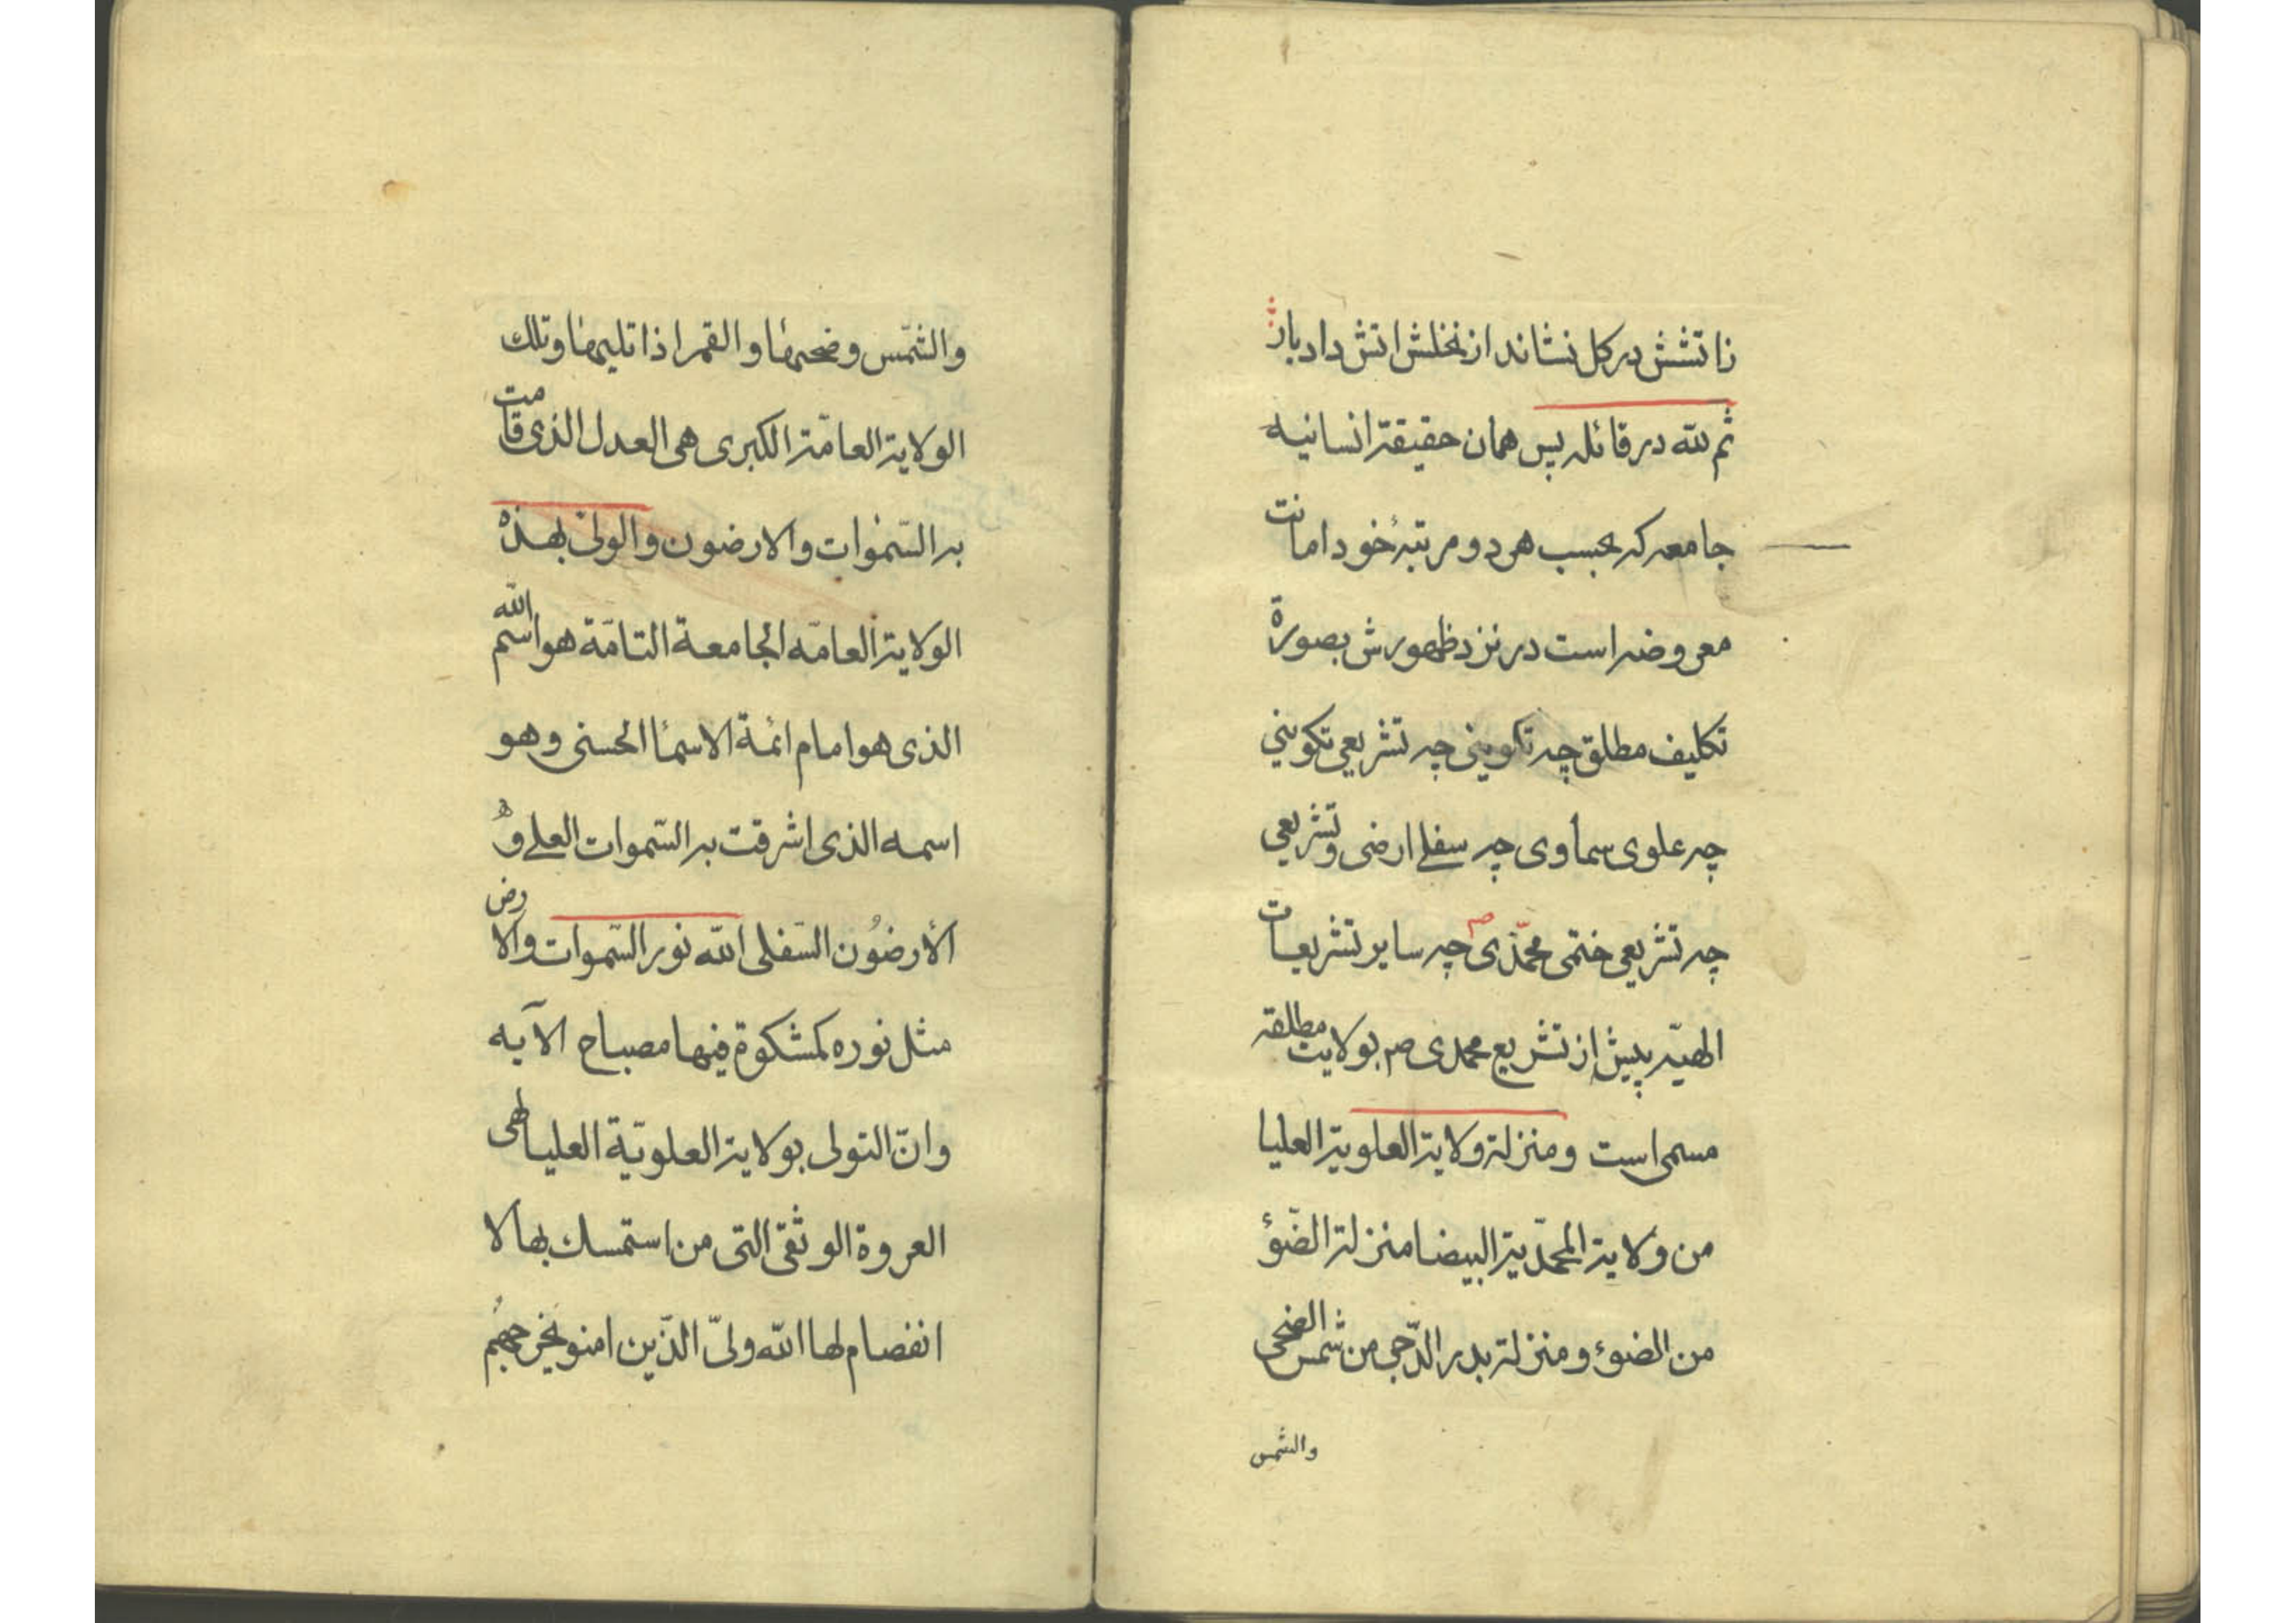 زاتشش در کل نشاند از نخلش اتش داد بار
ثم لله در قائله پس همان حقیقة انسانیه
جامعه که بحسب هر دو مرتبهٔ خود امانت
معروضه است در نزد ظهورش بصورة
تکلیف مطلق چه تکوینی چه تشریعی تکوینی
چه علوی سماوی چه سفلی ارضی و تشریعی
چه تشریعی ختمی محمّدی ص چه سایر تشریعات
الهیّه پیش از تشریع محمدی ص بولایت مطلقه
مسمی است ومنزلة ولایة العلویة العلیا
من ولایة المحمّدیة البیضا منزلة الضّوء
من الضوء ومنزلة بدر الدّجی من شمس الضحی
والشمس
والشّمس وضحیها والقمر اذا تلیها وتلک
الولایة العامّة الکبری هی العدل الذی قامت
به السّموات والارضون والولیّ بهذه
الولایة العامّه الجامعة التامّة هو اسم الله
الذی هو امام ائمة الاسما الحسنی وهو
اسمه الذی اشرقت به السّموات العلی و
الأرضوُن السّفلی الله نور السّموات والارض
مثل نوره کمشکوة فیها مصباح الآیه
وانّ التولی بولایة العلویّة العلیا لهی
العروة الوثقی التی من استمسک بها لا
انفصام لها الله ولیّ الذّین امنو یخرجهم